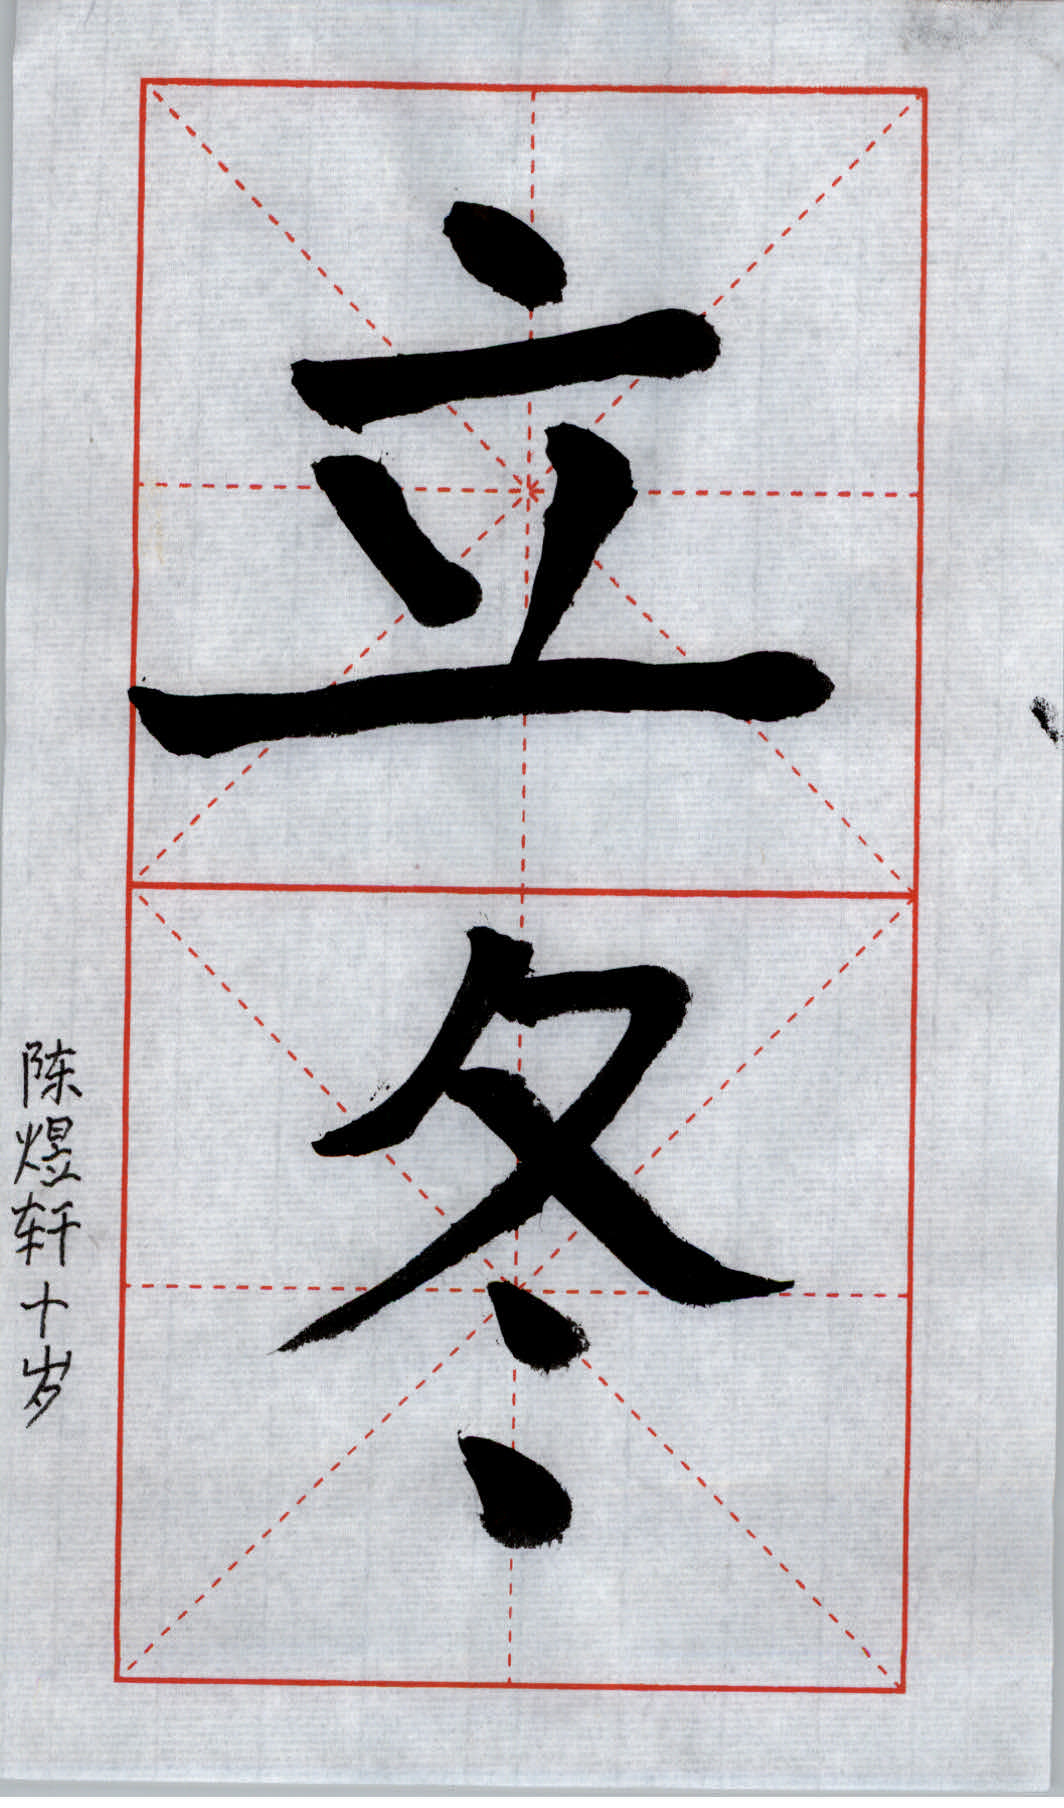 立冬
陈煜轩十岁